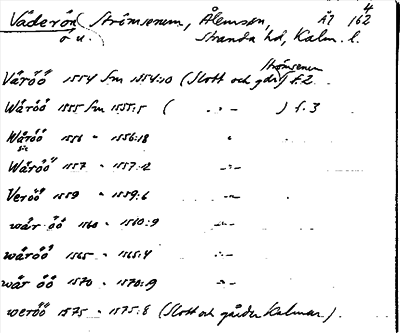 Väderön (Strömserum, Ålemsön, Äl 4 162
ö u. Stranda hd, Kalm. l.
Strömserum
Väröö 1554 Sm 1554:10 (Slott och gdr) f. 2
Wåröö 1555 Sm 1555:5 ( -"- ) f. 3
Wäröö 1556 " 1556:18 "
sic
Wäröö 1557 " 1557:12 -"-
Veröö 1559 " 1559:6 -"-
wär öö 1560 " 1560:9 -"-
wäröö 1565 " 1565:4 -"-
wär öö 1570 " 1570:9 -"-
weröö 1575 " 1575:8 (Slott och gårder Kalmar).